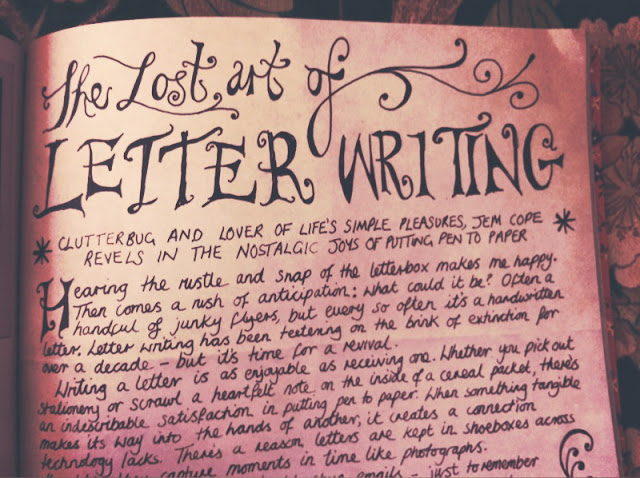 The Lost art of
LETTER WRITING
* CLUTTERBUG AND LOVER OF LIFE'S SIMPLE PLEASURES, JEM COPE *
REVELS IN THE NOSTALGIC JOYS OF PUTTING PEN TO PAPER
Hearing the rustle and snap of the letterbox makes me happy.
Then comes a rush of anticipation: what could it be? Often a
handful of junky flyers, but every so often it's a handwritten
letter. Letter writing has been teetering on the brink of extinction for
over a decade - but it's time for a revival.
Writing a letter is as enjoyable as receiving one. Whether you pick out
stationery or scrawl a heartfelt note on the inside of a cereal packet, there's
an indescribable satisfaction in putting pen to paper. When something tangible
makes its way into the hands of another, it creates a connection
technology lacks. There's a reason letters are kept in shoeboxes across
they capture moments in time like photographs.
emails - just to remember